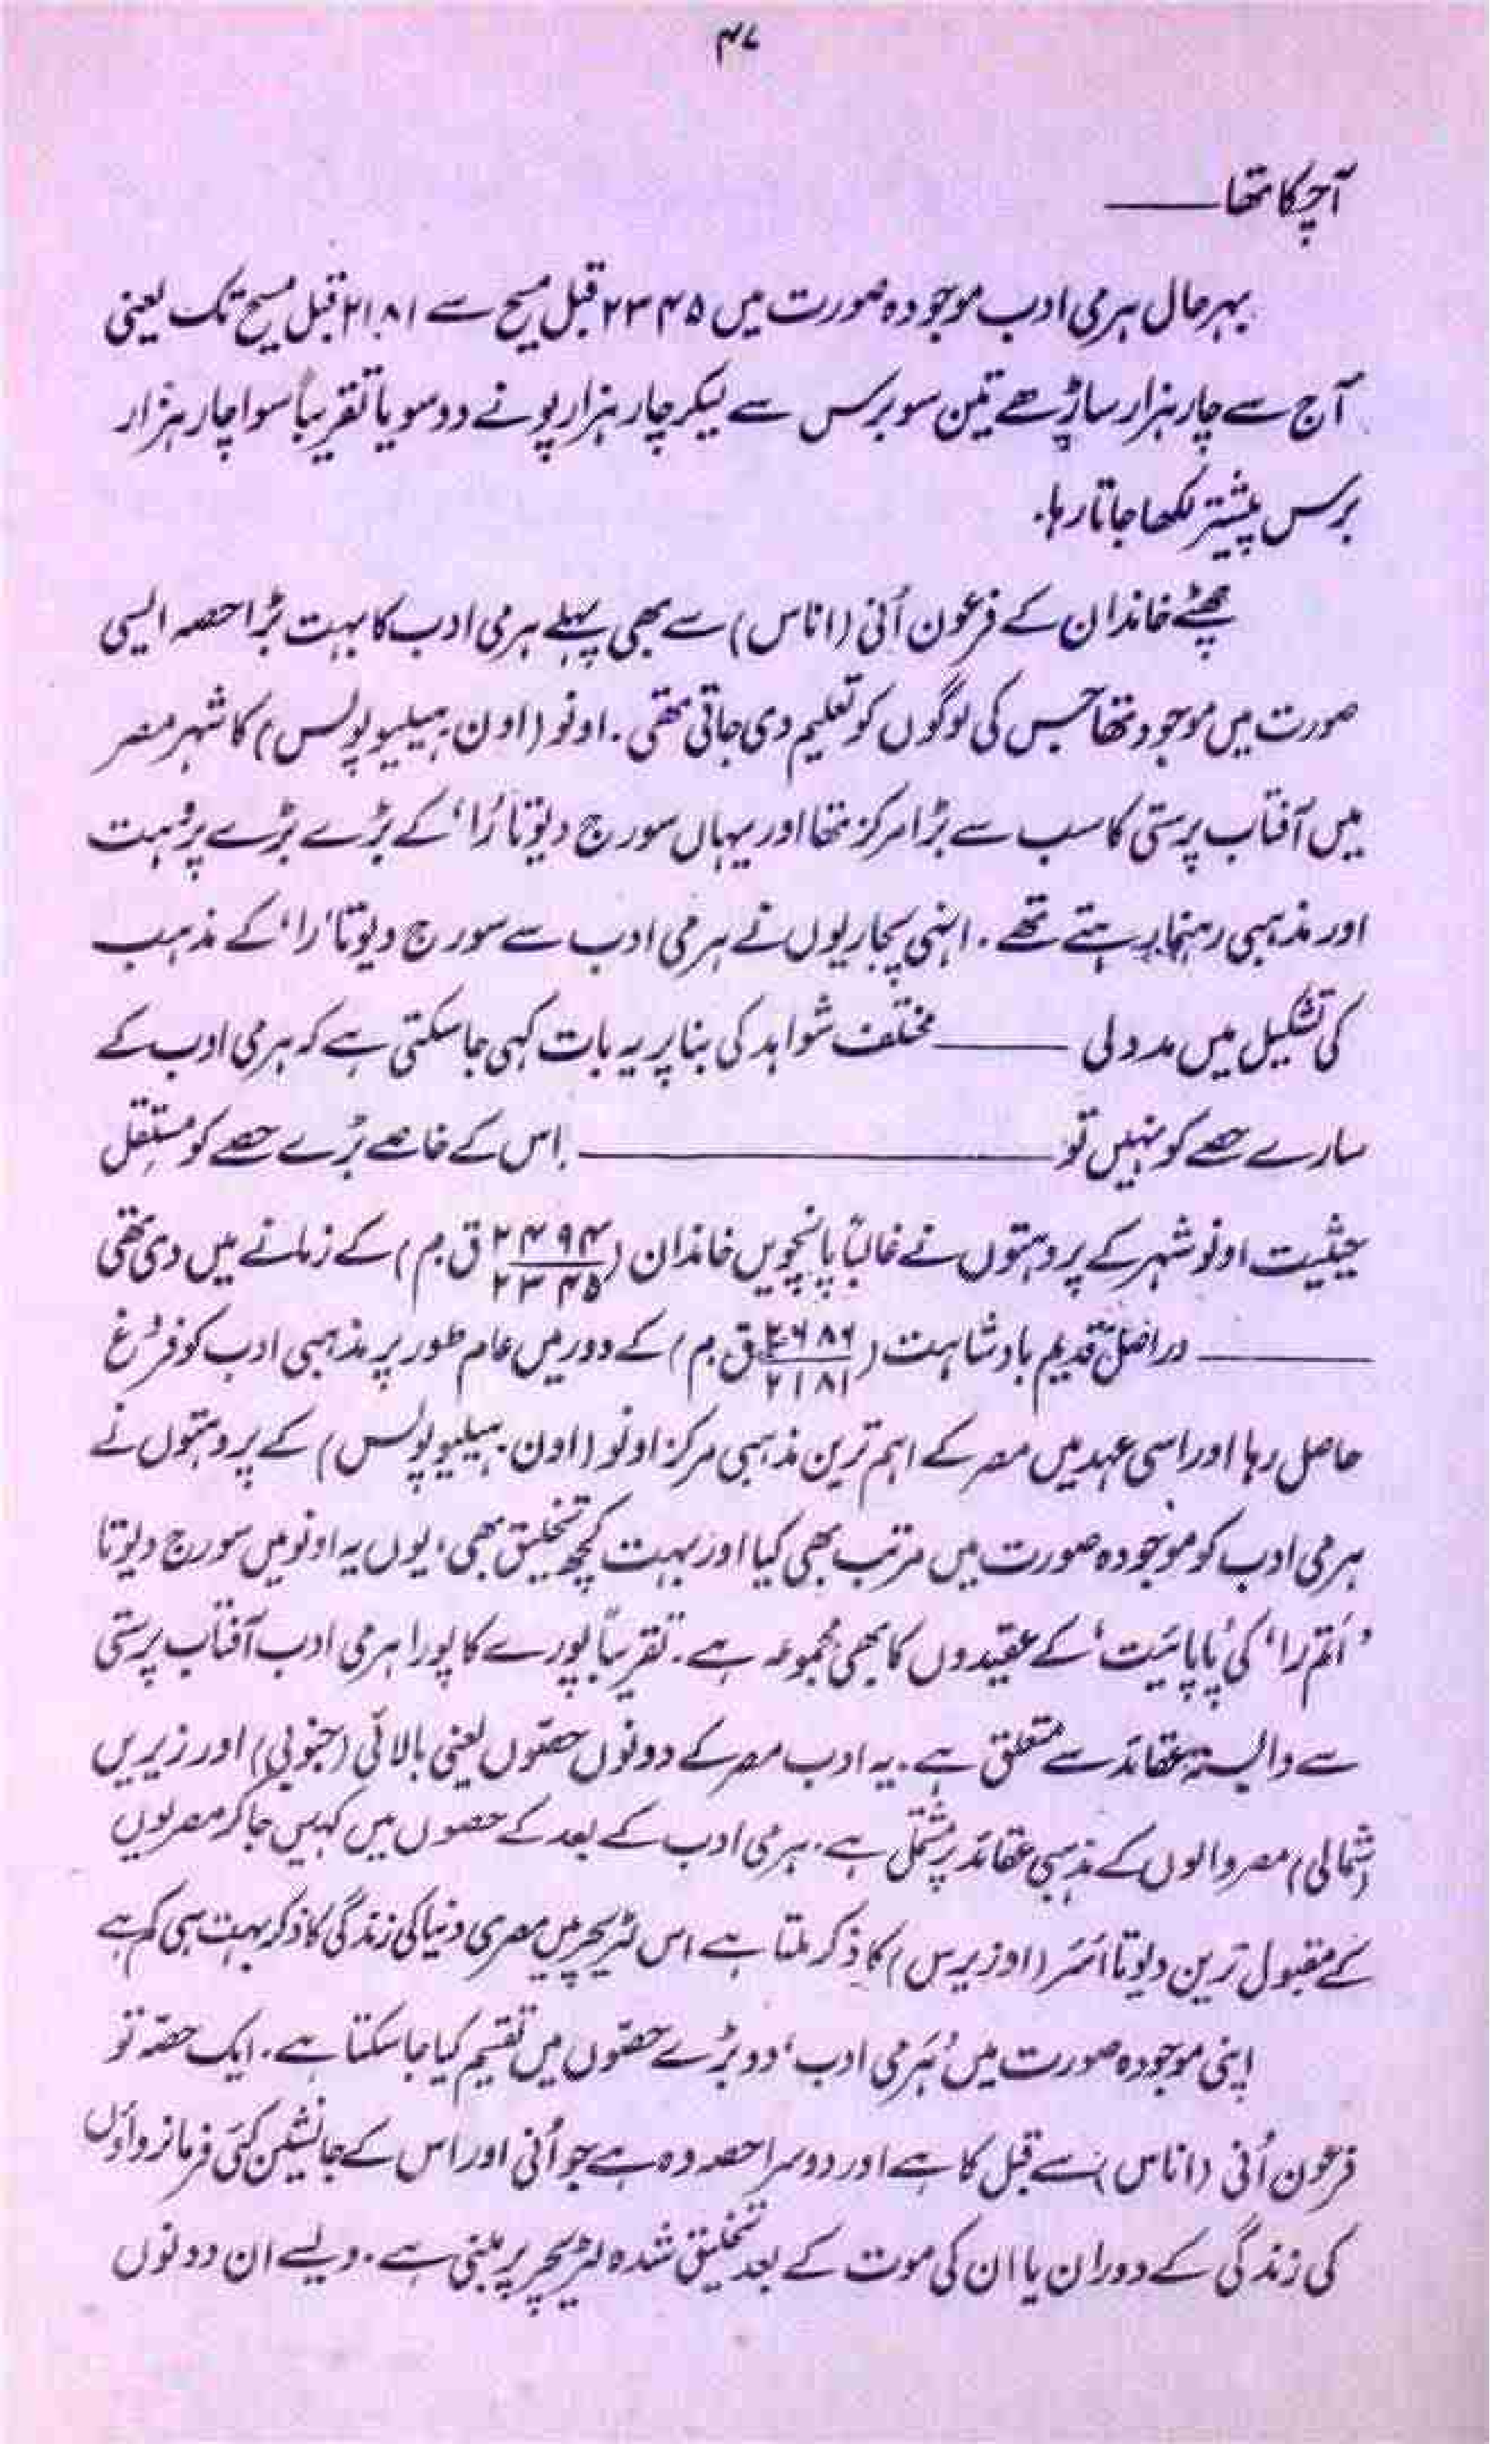 ۴۷
آچکا تھا ——
بہرحال ہرمی ادب موجودہ صورت میں ۲۳۴۵ قبل مسیح سے ۲۱۸۱ قبل مسیح تک یعنی
آج سے چار ہزار ساڑھے تین سو برس سے لیکر چار ہزار پونے دو سو یا تقریباً سوا چار ہزار
برس پیشتر لکھا جاتا رہا۔
چھٹے خاندان کے فرعون اُنی (اناس) سے بھی پہلے ہرمی ادب کا بہت بڑا حصہ ایسی
صورت میں موجود تھا جس کی لوگوں کو تعلیم دی جاتی تھی۔ اونو (اون۔ ہیلیوپولس) کا شہر مصر
میں آفتاب پرستی کا سب سے بڑا مرکز تھا اور یہاں سورج دیوتا ’را‘ کے بڑے بڑے پروہت
اور مذہبی رہنما رہتے تھے۔ انہی پجاریوں نے ہرمی ادب سے سورج دیوتا ’را‘ کے مذہب
کی تشکیل میں مدد لی —— مختلف شواہد کی بنا پر یہ بات کہی جا سکتی ہے کہ ہرمی ادب کے
سارے حصے کو نہیں تو —————— اس کے خاصے بڑے حصے کو مستقل
حیثیت اونو شہر کے پروہتوں نے غالباً پانچویں خاندان (۲۴۹۴/۲۳۴۵ ق۔م) کے زمانے میں دی تھی
—— دراصل قدیم بادشاہت (۲۶۸۶/۲۱۸۱ ق۔م) کے دور میں عام طور پر مذہبی ادب کو فروغ
حاصل رہا اور اسی عہد میں مصر کے اہم ترین مذہبی مرکز اونو (اون۔ ہیلیوپولس) کے پروہتوں نے
ہرمی ادب کو موجودہ صورت میں مرتب بھی کیا اور بہت کچھ تخلیق بھی، یوں یہ اونو میں سورج دیوتا
’اَتم را‘ کی ’پاپائیت‘ کے عقیدوں کا بھی مجموعہ ہے۔ تقریباً پورے کا پورا ہرمی ادب آفتاب پرستی
سے وابستہ عقائد سے متعلق ہے۔ یہ ادب مصر کے دونوں حصّوں یعنی بالائی (جنوبی) اور زیریں
(شمالی) مصر والوں کے مذہبی عقائد پر مشتمل ہے۔ ہرمی ادب کے بعد کے حصوں میں کہیں جا کر مصریوں
کے مقبول ترین دیوتا اَسَر (اوزیرس) کا ذکر ملتا ہے اس لٹریچر میں مصری دنیا کی زندگی کا ذکر بہت ہی کم ہے
اپنی موجودہ صورت میں ’ہَرمی ادب‘ دو بڑے حصّوں میں تقسیم کیا جا سکتا ہے۔ ایک حصّہ تو
فرعون اُنی (اناس) سے قبل کا ہے اور دوسرا حصہ وہ ہے جو اُنی اور اس کے جانشین کئی فرمانرواؤں
کی زندگی کے دوران یا ان کی موت کے بعد تخلیق شدہ لٹریچر پر مبنی ہے۔ ویسے ان دونوں